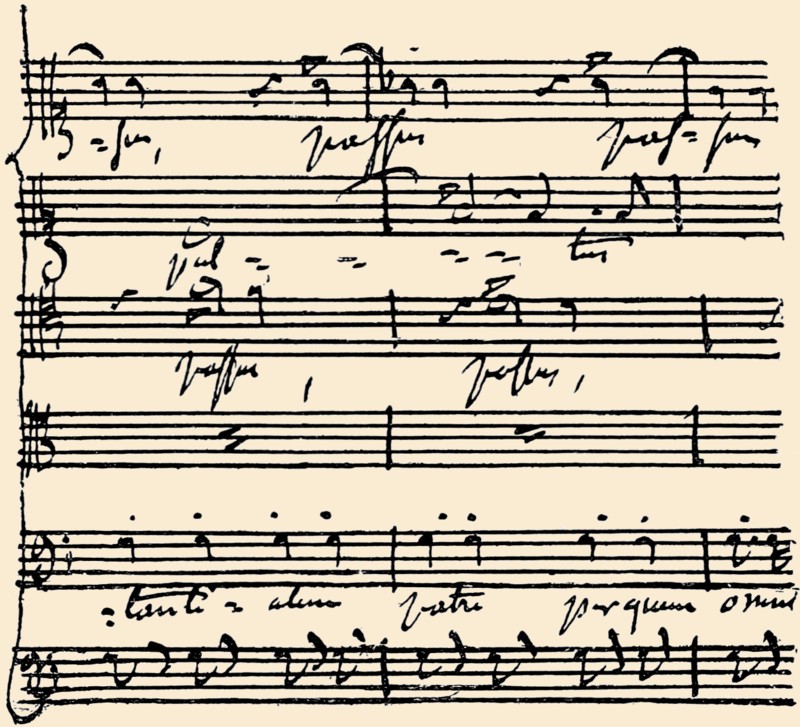 =sus, passus pas=sus
pul - - - - tus
passus, passus,
=tanti=alem patri per quem omni